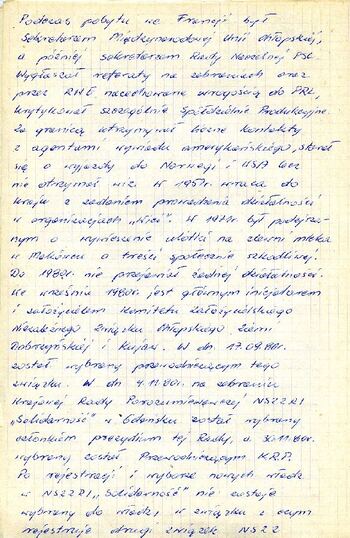 Podczas pobytu we Francji był
Sekretarzem Międzynarodowej Unii Chłopskiej,
a później sekretarzem Rady Naczelnej PSL.
Wygłaszał referaty na zebraniach oraz
przez RWE nacechowane wrogością do PRL,
krytykował szczególnie Spółdzielnie Produkcyjne.
Za granicą utrzymywał liczne kontakty
z agentami wywiadu amerykańskiego, starał
się o wyjazdy do Norwegii i USA lecz
nie otrzymał wiz. W 1957r. wraca do
kraju z zadaniem prowadzenia działalności
w organizacjach „Wici". W 1971r. był podejrza-
nym o wywieszanie ulotki na zlewni mleka
w o treści społecznie szkodliwej.
Do 1980r. nie przejawiał żadnej działalności.
We wrześniu 1980r. jest głównym inicjatorem
i założycielem Komitetu Założycielskiego
Niezależnego Związku Chłopskiego Ziemi
Dobrzyńskiej i Kujaw. W dn. 17.09.80r.
został wybrany przewodniczącym tego
związku. W dn. 4.11.80r. na zebraniu
Krajowej Rady Porozumiewawczej NSZZRI
„Solidarność" w Gdańsku został wybrany
członkiem prezydium tej Rady, a 30.11.80r.
wybrany został Przewodniczącym K.R.P.
Po rejestracji i wyborze nowych władz
w NSZZRI „Solidarność" nie zostaje
wybrany do władz w związku z czym
rejestruje drugi związek NSZZ